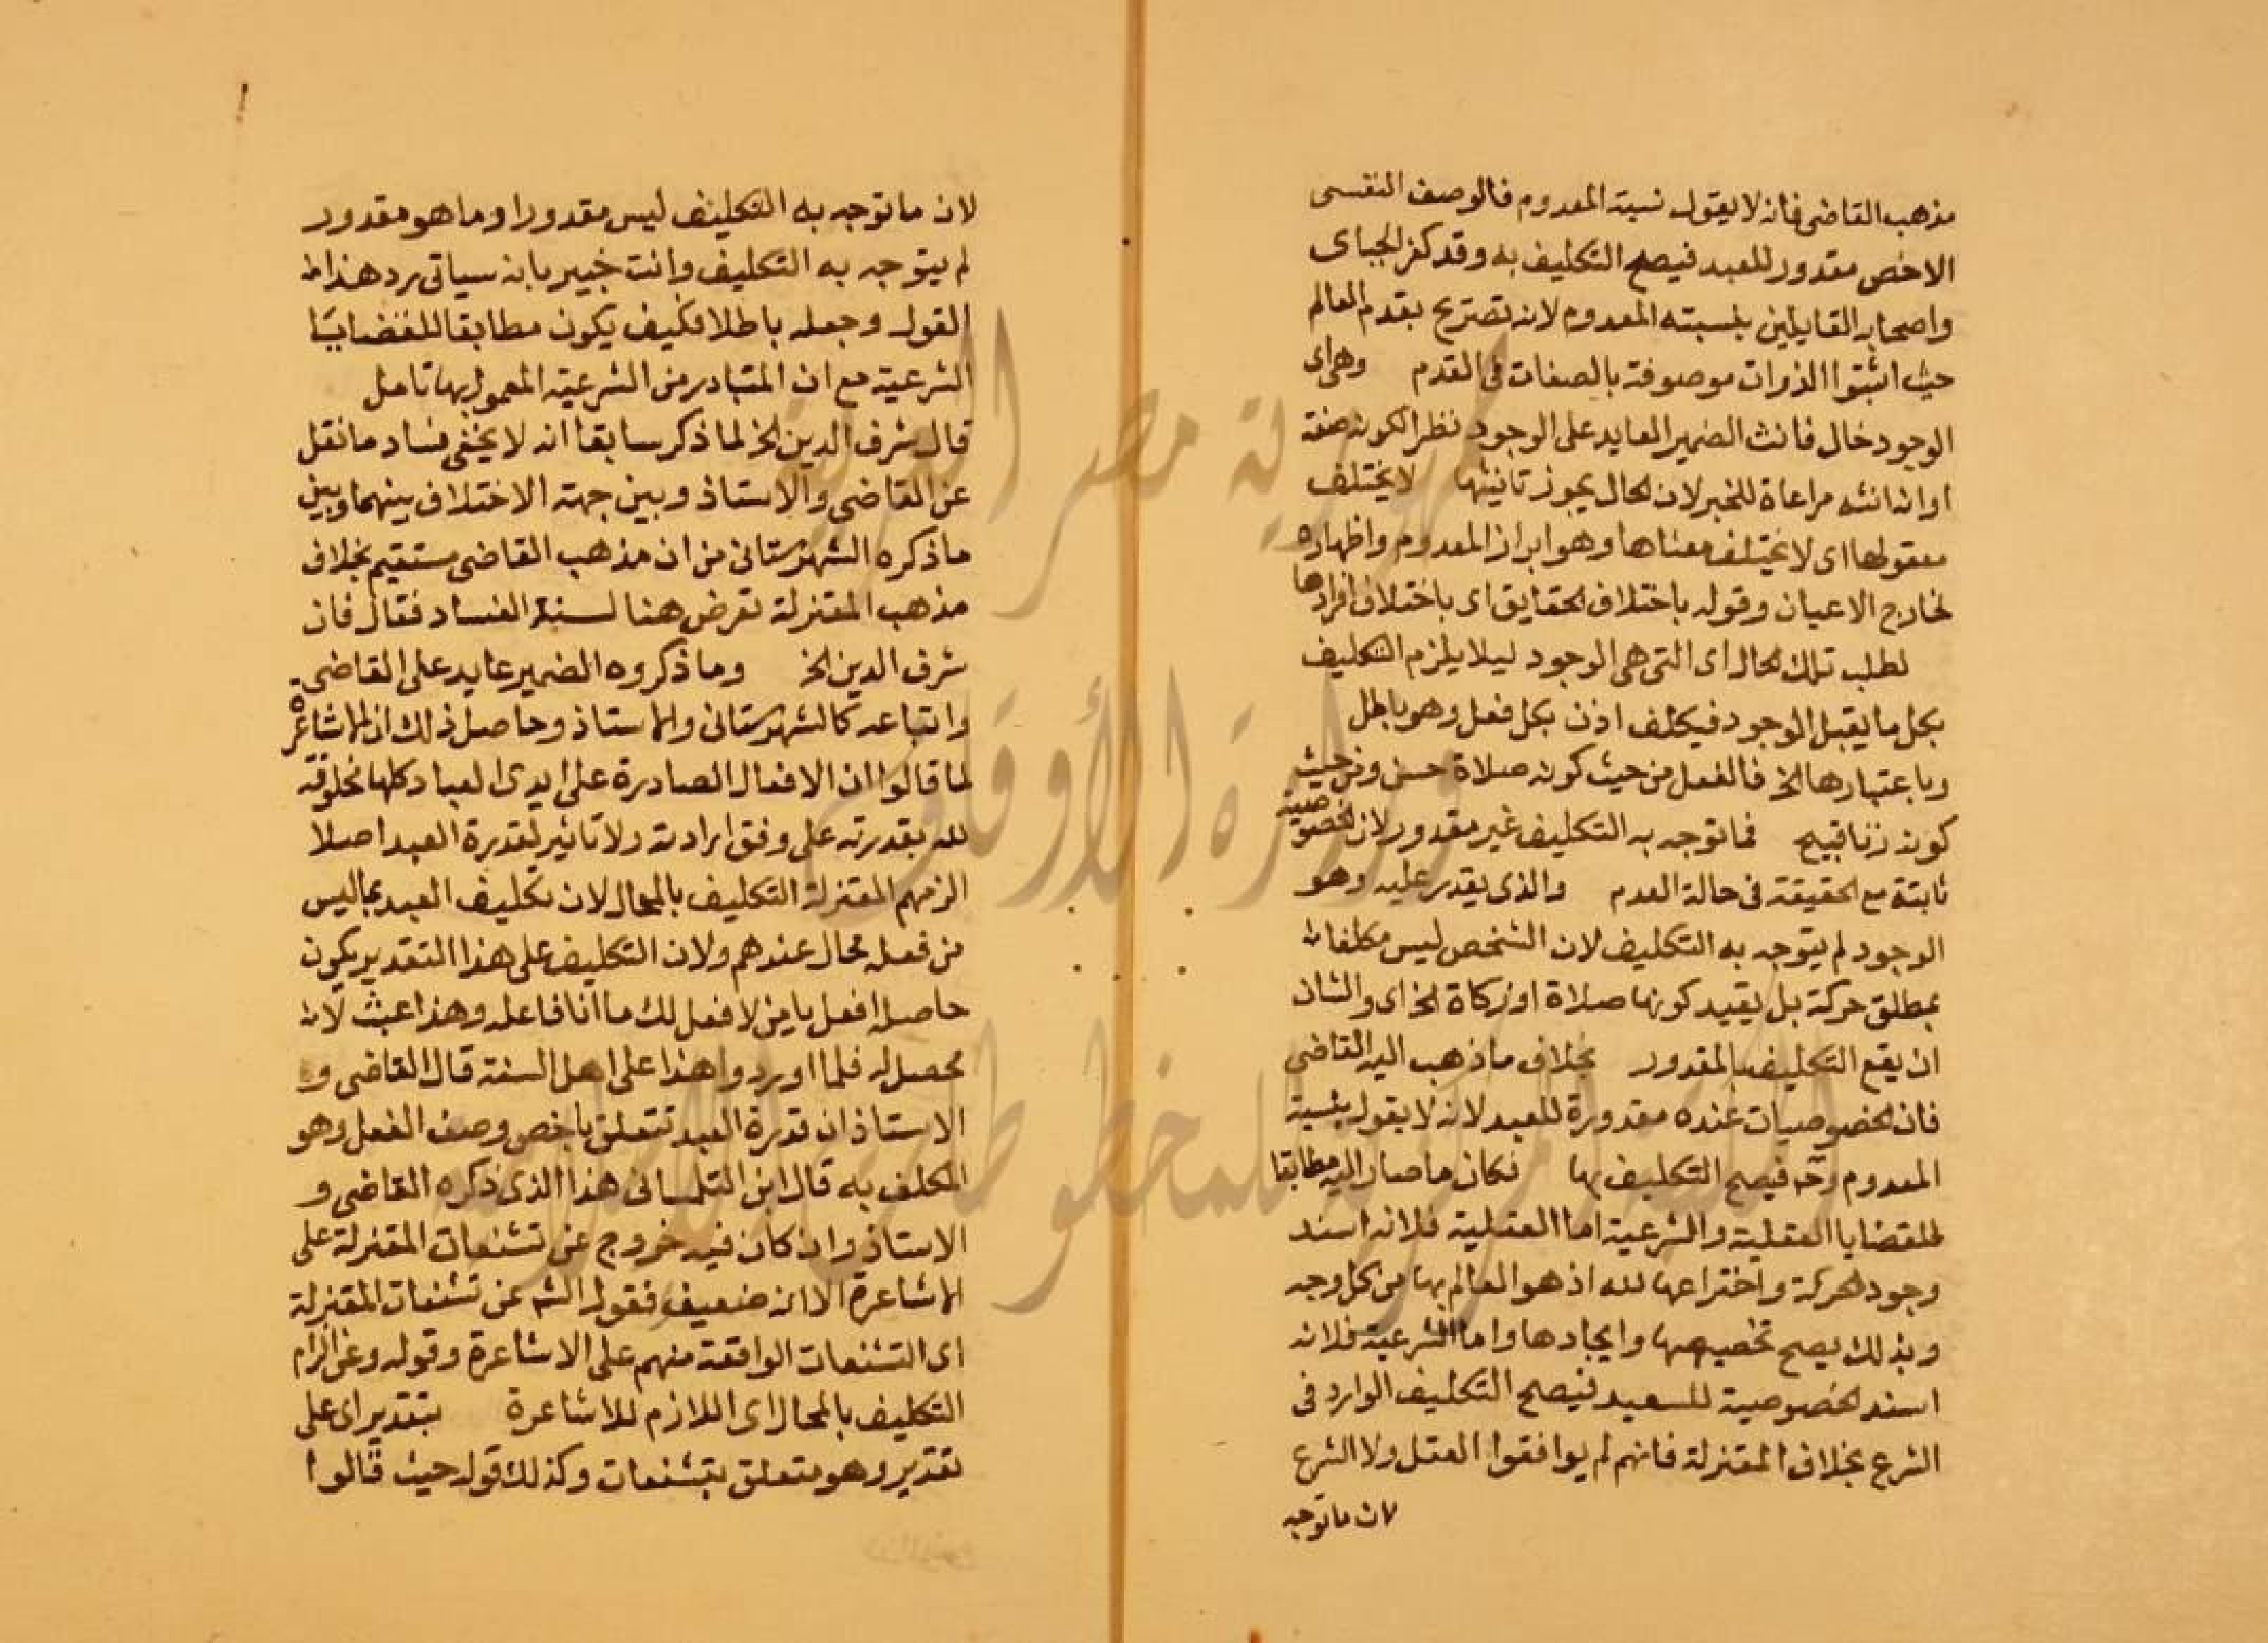 مذهب القاضى فانه لا يقول نسبة المعدوم فالوصف النفسى
الاخص مقدور للعبد فيصح التكليف به وقد كفر الجباى
واصحابه القايلين بلسبته المعدوم لانه تصريح بقدم العالم
حيث اثبتوا الذوات موصوفة بالصفات فى القدم وهى اى
الوجود حال فانث الضمير العايد على الوجود نظرا لكونه صفة
او انه انثه مراعاة للخبر لان الحال يجوز تانيثها لا يختلف
معقولها اى لا يختلف معناها وهو ابراز المعدوم واظهاره
لخارج الاعيان وقوله باختلاف الحقايق اى باختلاف افرادها
لطلب تلك الحال اى التى هى الوجود ليلا يلزم التكليف
بكل ما يقبل الوجود فيكلف اذن بكل فعل وهو باطل
وباعتبارها الخ فالفعل من حيث كونه صلاة حسن ومن حيث
كونه زنا قبيح فما توجه به التكليف غير مقدور لان الخصوصية
ثابتة مع الحقيقة فى حالة العدم والذى يقدر عليه وهو
الوجود لم يتوجه به التكليف لان الشخص ليس مكلفا
بمطلق حركة بل بقيد كونها صلاة او زكاة الخ اى والشان
ان يقع التكليف بالمقدور بخلاف ما ذهب اليه القاضى
فان الخصوصيات عنده مقدورة للعبد لانه لا يقول بشيية
المعدوم وح فيصح التكليف بها فكان ما صار اليه مطابقا
للقضايا العقلية والشرعية اما العقلية فلانه اسند
وجود الحركة واختراعها لله اذ هو العالم بها من كل وجه
وبذلك يصح تخصيصها وايجادها واما الشرعية فلانه
اسند الخصوصية للعبد فيصح التكليف الوارد فى
الشرع بخلاف المعتزلة فانهم لم يوافقوا العقل ولا الشرع
لان ما توجه
لان ما توجه به التكليف ليس مقدورا وما هو مقدور
لم يتوجه به التكليف وانت خبير بانه سياتى رد هذا
القول وجعله باطلا فكيف يكون مطابقا للقضايا
الشرعية مع ان المتبادر من الشرعية المعمول بها تامل
قال شرف الدين الخ لما ذكر سابقا انه لا يخفى فساد ما نقل
عن القاضى والاستاذ وبين جهة الاختلاف بينهما وبين
ما ذكره الشهرستانى من ان مذهب القاضى مستقيم بخلاف
مذهب المعتزلة تعرض هنا الفساد فقال فان
شرف الدين الخ وما ذكروه الضمير عايد على القاضى
واتباعه كالشهرستانى والاستاذ وحاصل ذلك ان الاشاعرة
لما قالوا ان الافعال الصادرة على ايدى العباد كلها مخلوقة
لله بقدرته على وفق ارادته ولا تاثير لقدرة العبد اصلا
الزمهم المعتزلة التكليف بالمحال لان تكليف العبد بما ليس
من فعله محال عندهم ولان التكليف على هذا التقدير يكون
حاصله افعل يا من لا فعل لك ما انا فاعله وهذا عبث لا
محصل له فلما اوردوا هذا على اهل السنة قال القاضى و
الاستاذ ان قدرة العبد تتعلق باخص وصف الفعل وهو
المكلف به قال ابن التلمسانى هذا الذى ذكره القاضى و
الاستاذ وان كان فيه خروج عن تشنعات المعتزلة على
الاشاعرة الا انه ضعيف فقول الشه عن تشنعات المعتزلة
اى التشنعات الواقعة منهم على الاشاعرة وقوله وعن الزام
التكليف بالمحال اى اللازم للاشاعرة بتقدير اى على
تقدير وهو متعلق بتشنعات وكذلك قوله حيث قالوا
جمهورية مصر العربية
وزارة الأوقاف
المكتبة المركزية للمخطوطات الإسلامية